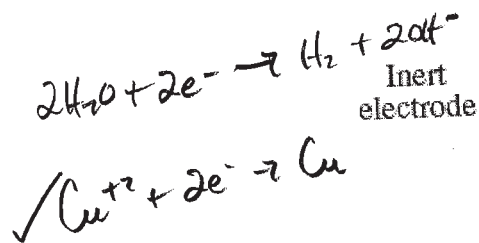 2H₂O + 2e⁻ → H₂ + 2OH⁻
Inert
electrode
✓ Cu⁺² + 2e⁻ → Cu